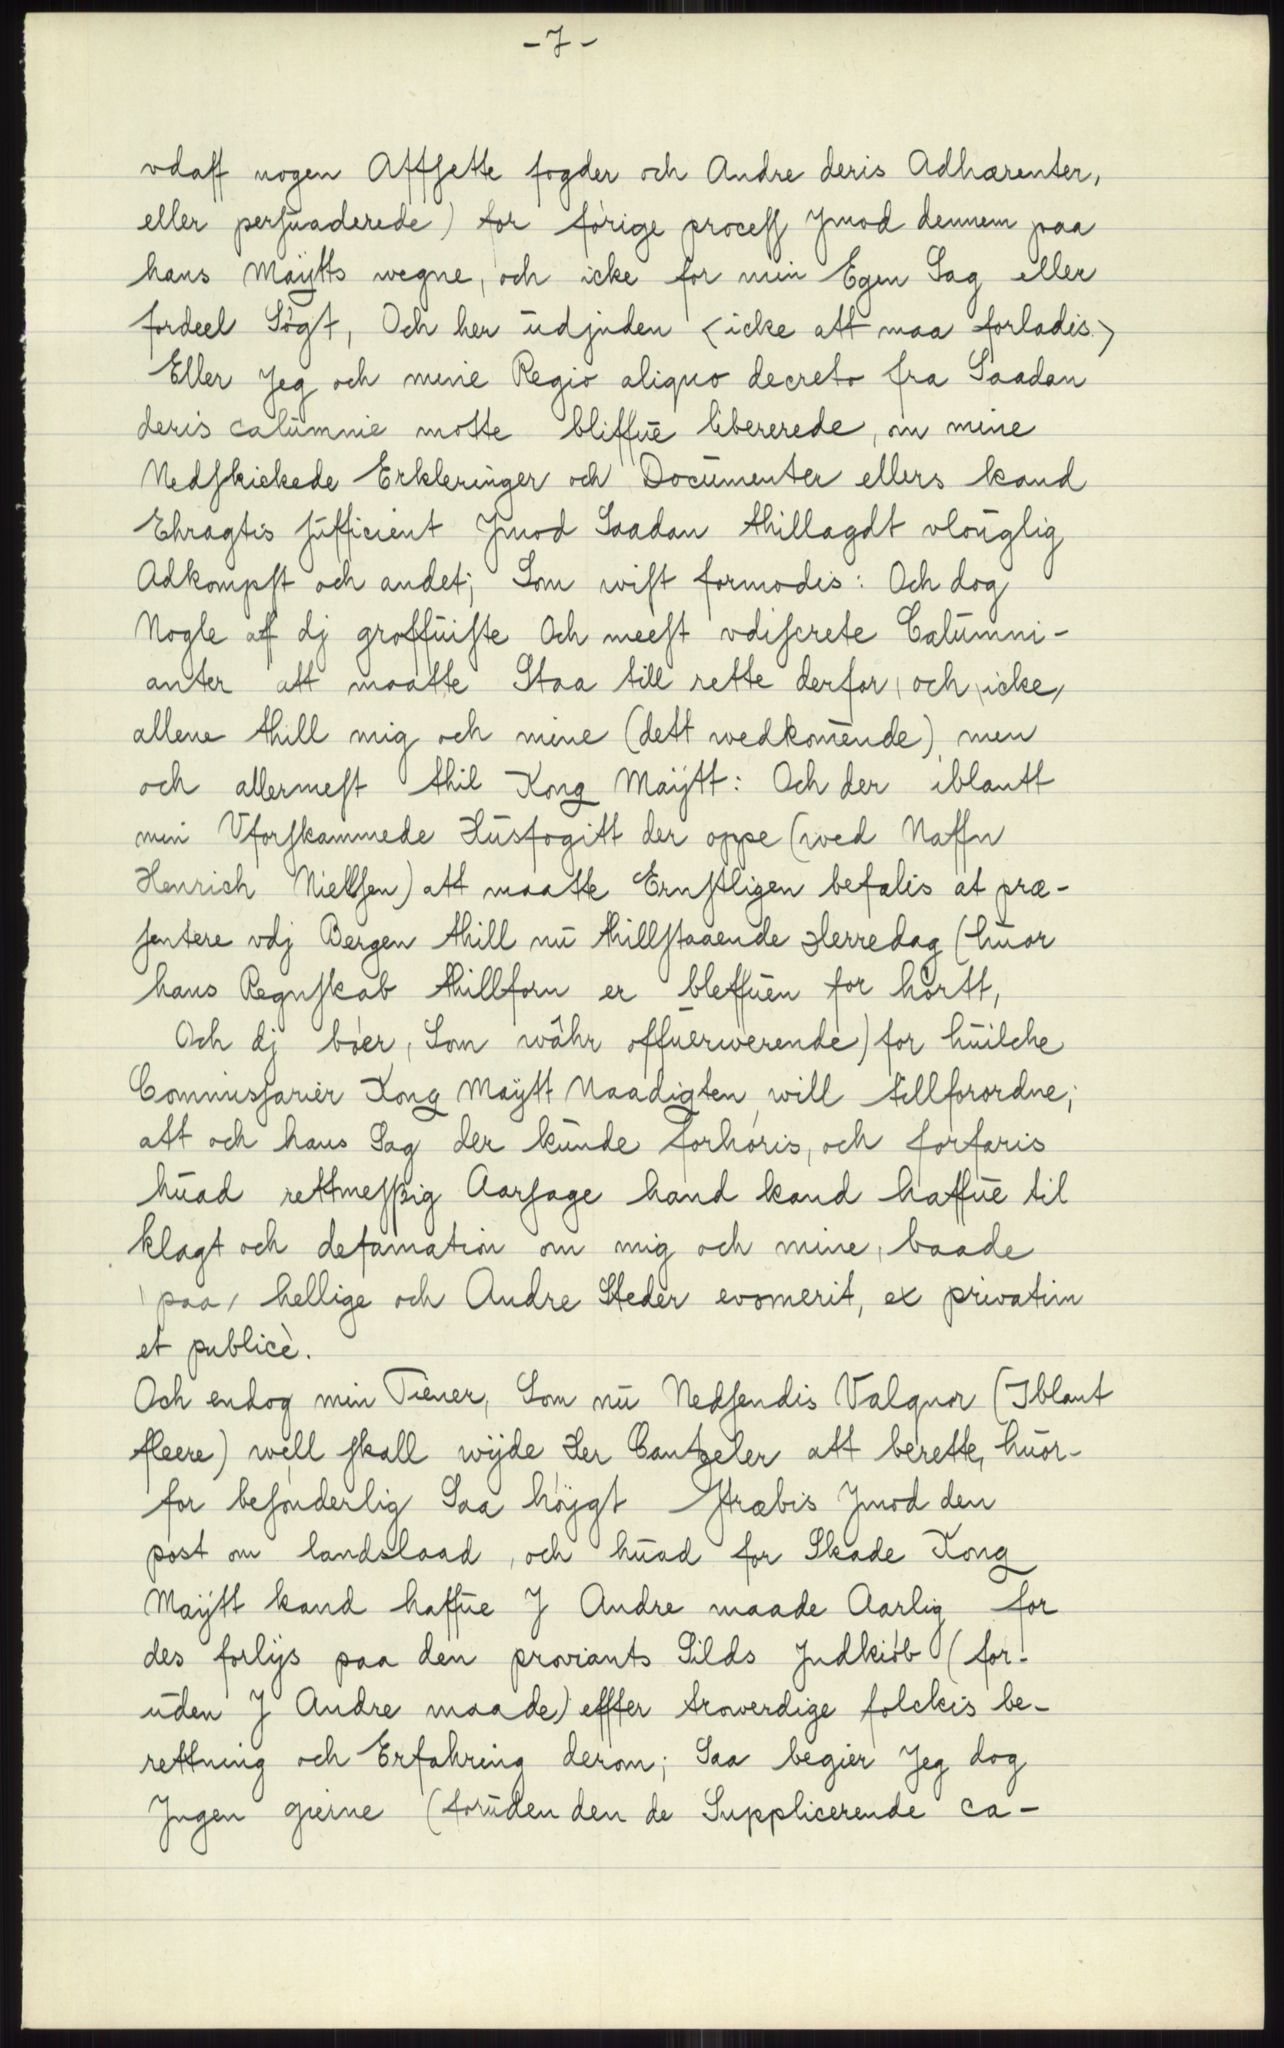 - 7 -
vdaff nogen Affsette fogder och Andre deris Adhærenter,
eller persuaderede) for førige process Jmod dennem paa
hans Maÿtts wegne, och icke for min Egen Sag eller
fordeel Søgt, Och her udjnden <icke att maa forladis.>
Eller Jeg och mine Regio aliquo decreto fra Saadan
deris calumnie motte bliffue libererede, om mine
Nedskickede Erkleringer och Documenter ellers kand
Ehragtis sufficient Jmod Saadan thillagdt vlouglig
Adkompst och andet; Som wist formodis: Och dog
Nogle af dj groffuiste Och meest vdiscrete Calumni-
anter att maatte Staa till rette derfor, och icke,
allene thill mig och mine (dett wedkomende) men
och allermest thil Kong Maÿtt: Och der iblantt
min Vforskammede Husfogitt der oppe (wed Naffn
Henrich Nielsen) att maatte Ernstligen befalis at præ-
sentere vdj Bergen thill nu thillstaaende Herredag (huor
hans Regnskab thillforn er bleffuen for hørtt,
Och dj bøer, Som währ offuerwerende) for huilche
Commissarier Kong Maÿtt Naadigten will tillforordne;
att och hans Sag der kunde forhøris, och forfaris
huad rettmessig Aarsage hand kand haffue til
klagt och defamation om mig och mine, baade
paa, hellige och Andre Steder evomerit, ex privatim
et publicè.
Och endog min Tiener, Som nu Nedsendis Valquor (Iblant
fleere) well skall wijde Her Cantzeler att berette, huor-
for besønderlig Saa høygt stræbis Jmod den
post om landslaad, och huad for Skade Kong
Maÿtt kand haffue J Andre maade Aarlig for
des forlijs paa den proviants Silds Jndkiøb (for-
uden J Andre maade) effter trowerdige folckis be-
rettning och Erfahring derom; Saa begier Jeg dog
Jngen gierne (foruden den de Supplicerende ca-